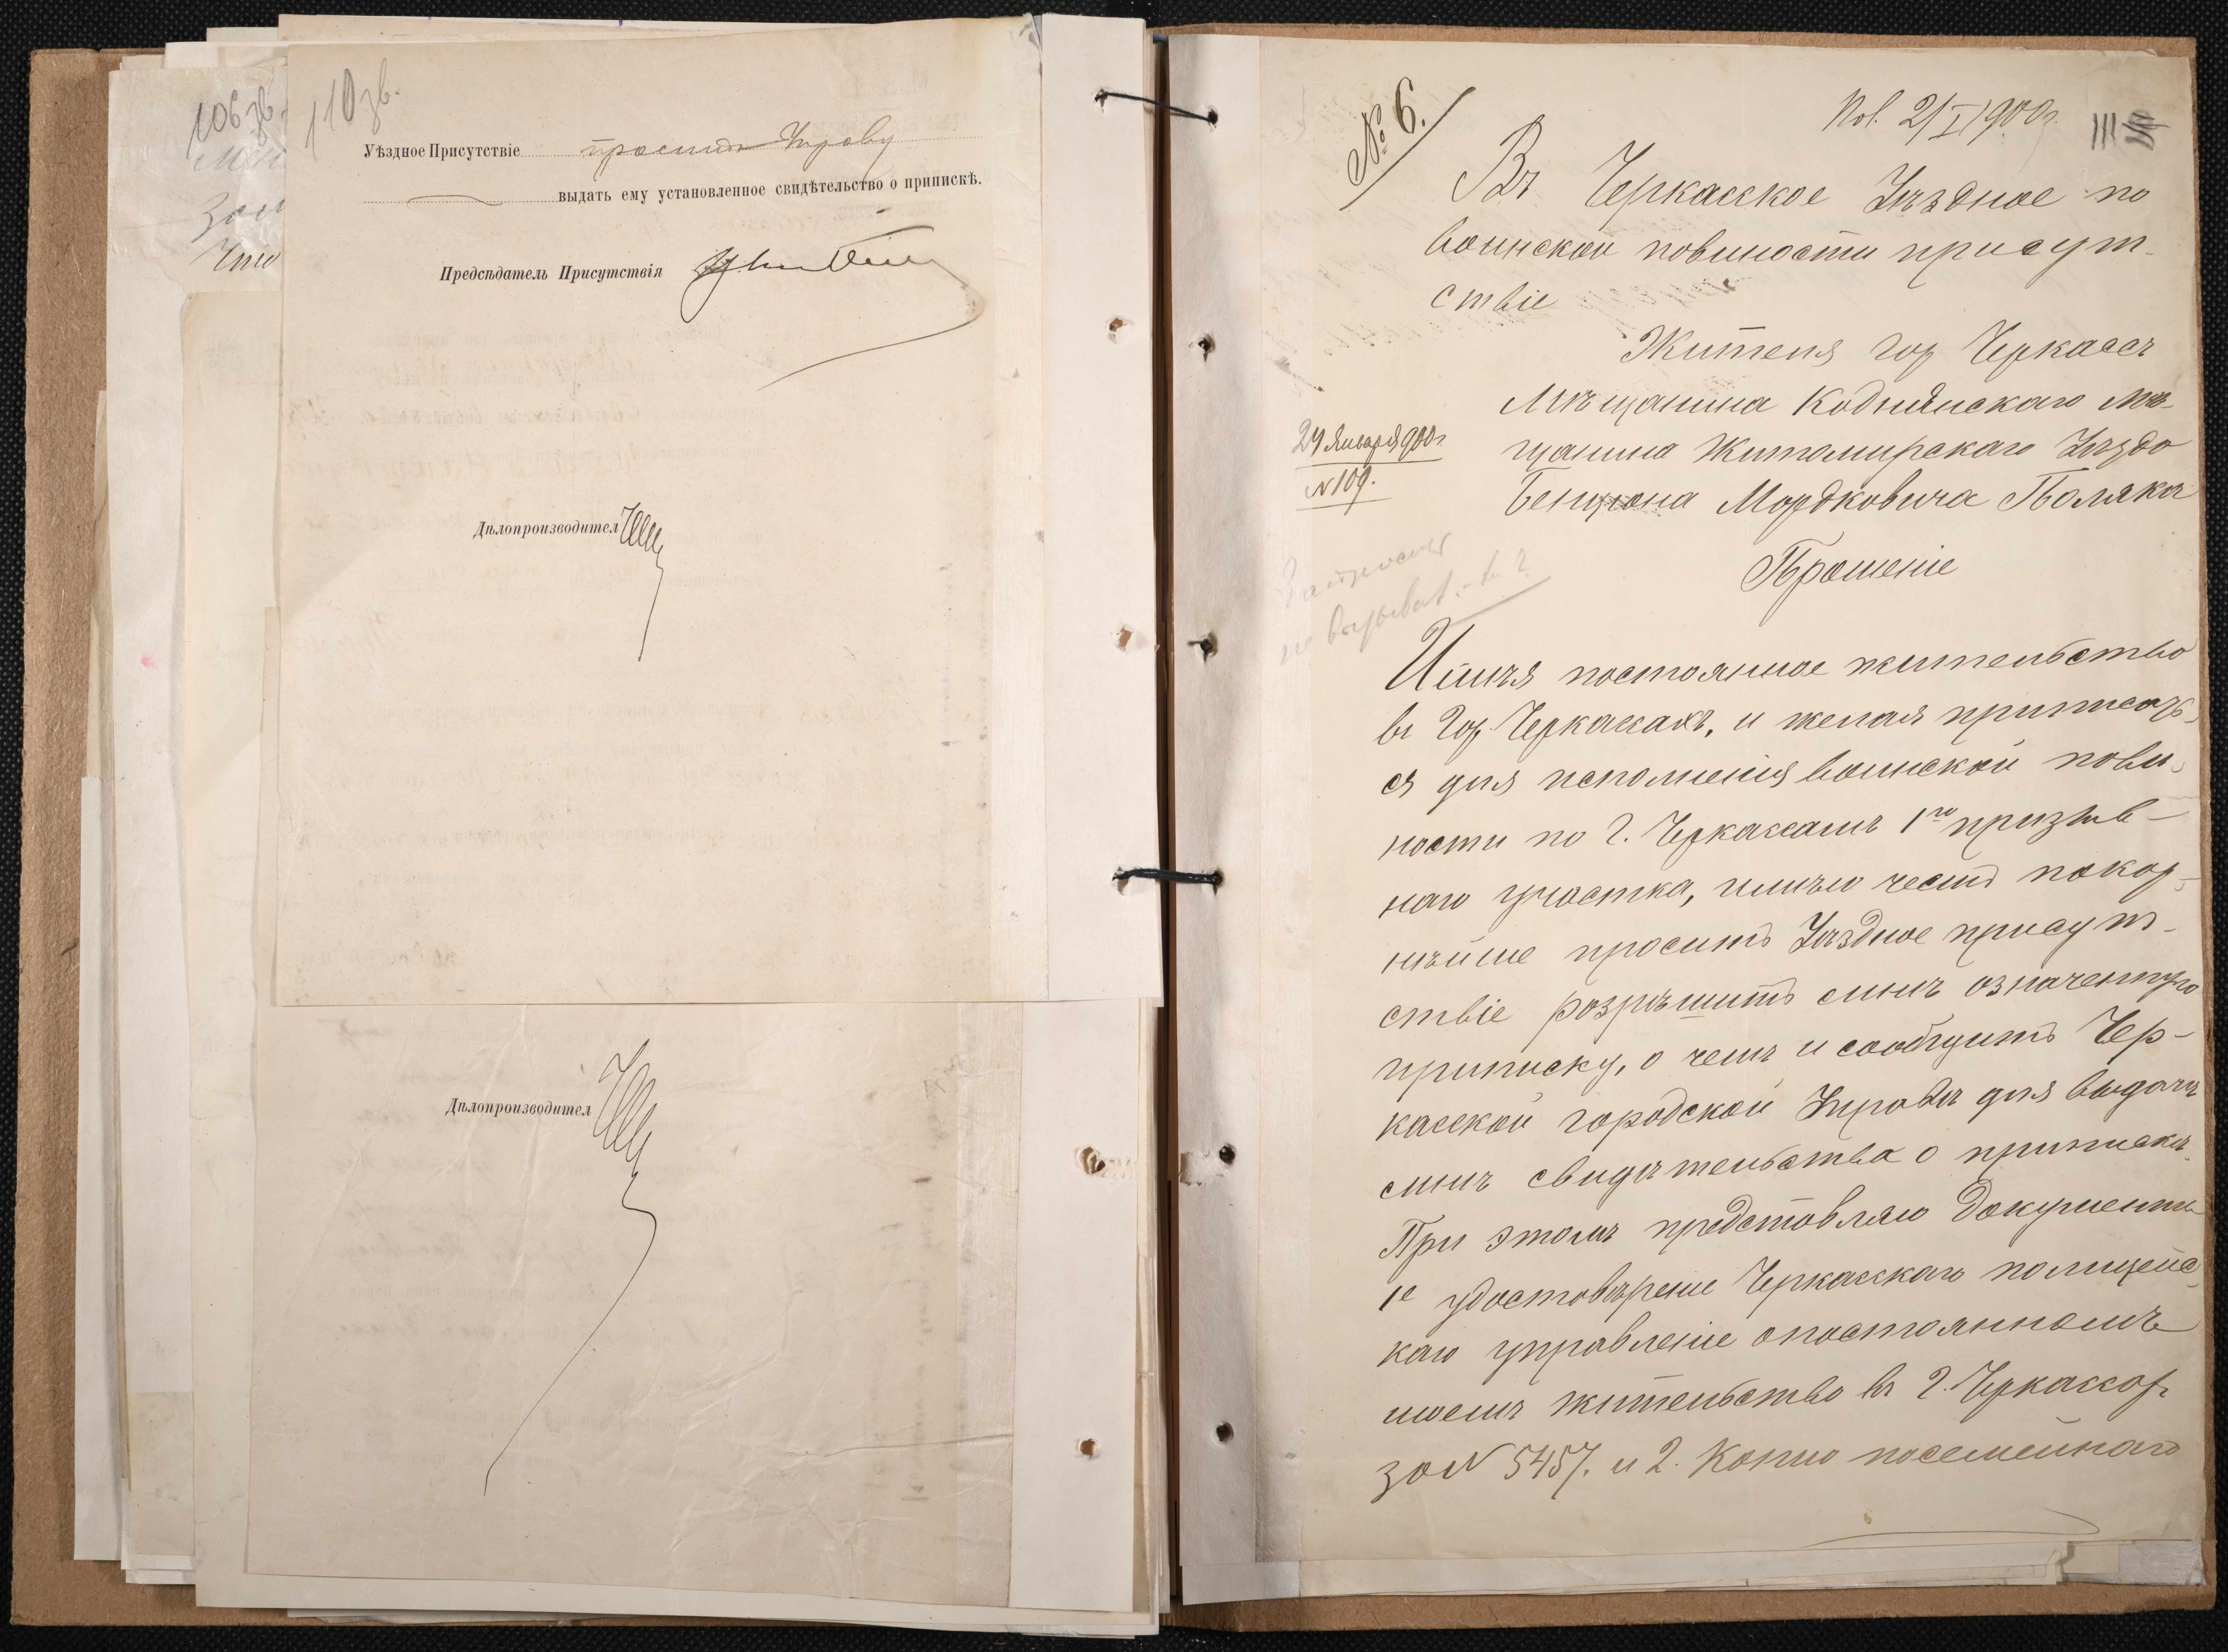 106 зв.
110 зв.
Уѣздное Присутствіе проситъ Управу
выдать ему установленное свидѣтельство о припискѣ.
Предсѣдатель Присутствія
Дѣлопроизводител
Дѣлопроизводител
№ 6.
Пол. 2/I 1900 г.
111
Въ Черкасское Уѣздное по
воинской повиности присут-
ствіе
Жителя гор Черкассъ
Мѣщанина Коднянскаго мѣ-
щанина Житомирскаго Уѣзда
Бенціона Мордковича Поляка
24 Января 900 г
№ 109.
Прошеніе
Имѣя постоянное жительство
въ гор. Черкасахъ, и желая приписать-
ся для исполненія воинской пови-
ности по г. Черкассамъ 1го призыв-
наго участка, имѣю честь покор-
нѣйше просить Уѣздное присут-
ствіе розрѣшить мнѣ означенную
приписку, о чемъ и сообщить Чер-
касской городской Управѣ для выдачи
мнѣ свидѣтельства о припискѣ.
При этомъ предстовляю документы
1е удостовѣреніе Черкасскаго полицейс-
каго управленіе о постоянномъ
моемъ жительство въ г. Черкассах
за N 5457. и 2. Копію посемейнаго